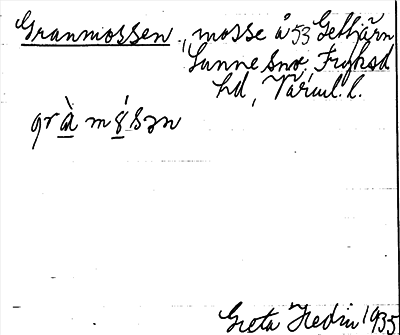 Granmossen, mosse å 53 Gettjärn
Sunne sn. Fryksd
hd, Värml. l.
grà mɞ́sən
Greta Hedin 1935